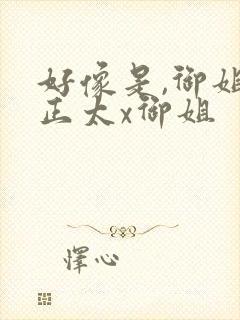 好像是,御姐
正太x御姐
怿心